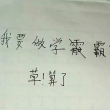 我要做学霰霸
草!算了